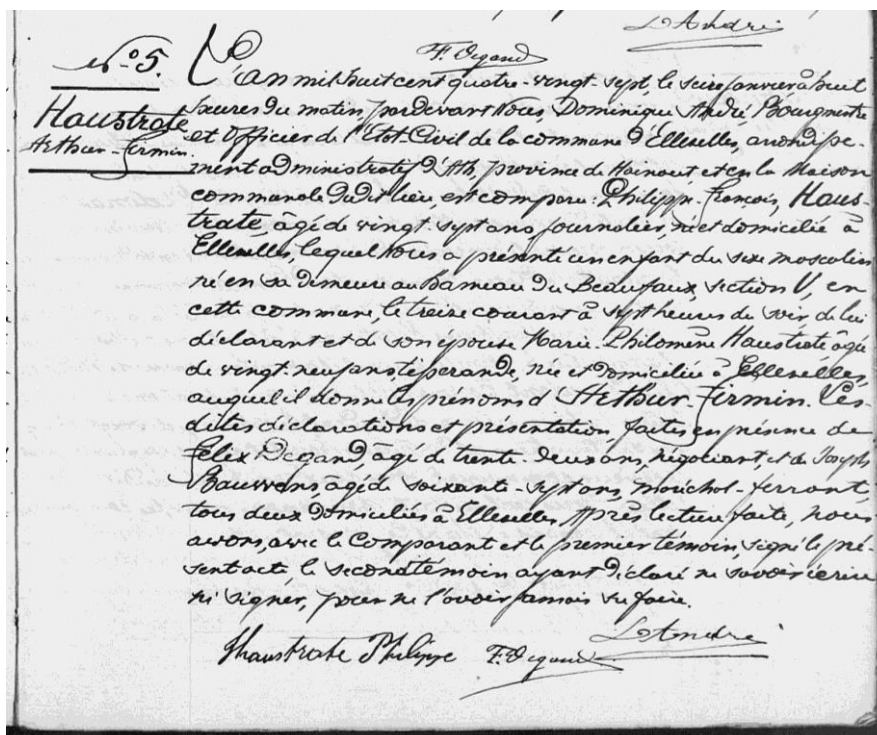 D. André
F. Degand
N° 5.
Haustrate
Arthur-Firmin.
L'an mil huit cent quatre-vingt-sept, le seize janvier à huit
heures du matin, pardevant Nous, Dominique André Bourgmestre
et Officier de l'Etat-Civil de la commune d'Ellezelles, arrondisse-
ment administratif d'Ath, province de Hainaut et en la Maison
communale dudit lieu, est comparu: Philippe-François, Haus-
trate âgé de vingt-sept ans journalier, né et domicilié à
Ellezelles, lequel Nous a présenté un enfant du sexe masculin
né en sa demeure au hameau du Beaufaux, section V, en
cette commune, le treize courant à sept heures du soir de lui
déclarant et de son épouse Marie-Philomène Haustrate âgée
de vingt-neuf ans tisserande, née et domiciliée à Ellezelles,
auquel il donne les prénoms d'Arthur-Firmin. Les-
dites déclarations et présentation, faites en présence de
Félix Degand, âgé de trente-deux ans, négociant, et de Joseph
âgé de soixante-sept ans, maréchal-ferrant,
tous deux domiciliés à Ellezelles. Après lecture faite, nous
avons, avec le Comparant et le premier témoin, signé le pré-
sent acte le second témoin ayant déclaré ne savoir écrire
ni signer, pour ne l'avoir jamais su faire.
Haustrate Philippe F. Degand D. André